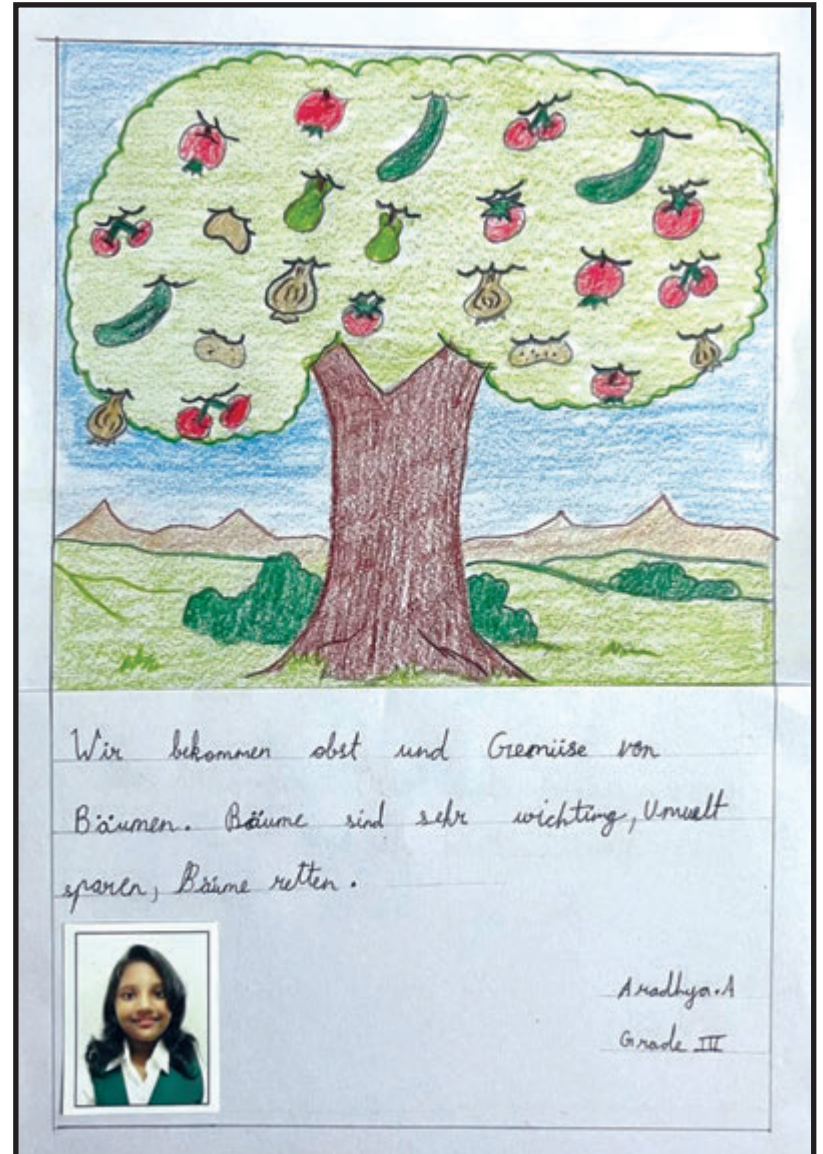 Wir bekommen obst und Gemüise von
Bäumen. Bäume sind sehr wichting, Umwelt
sparen, Bäume retten.
Aradhya.A
Grade III